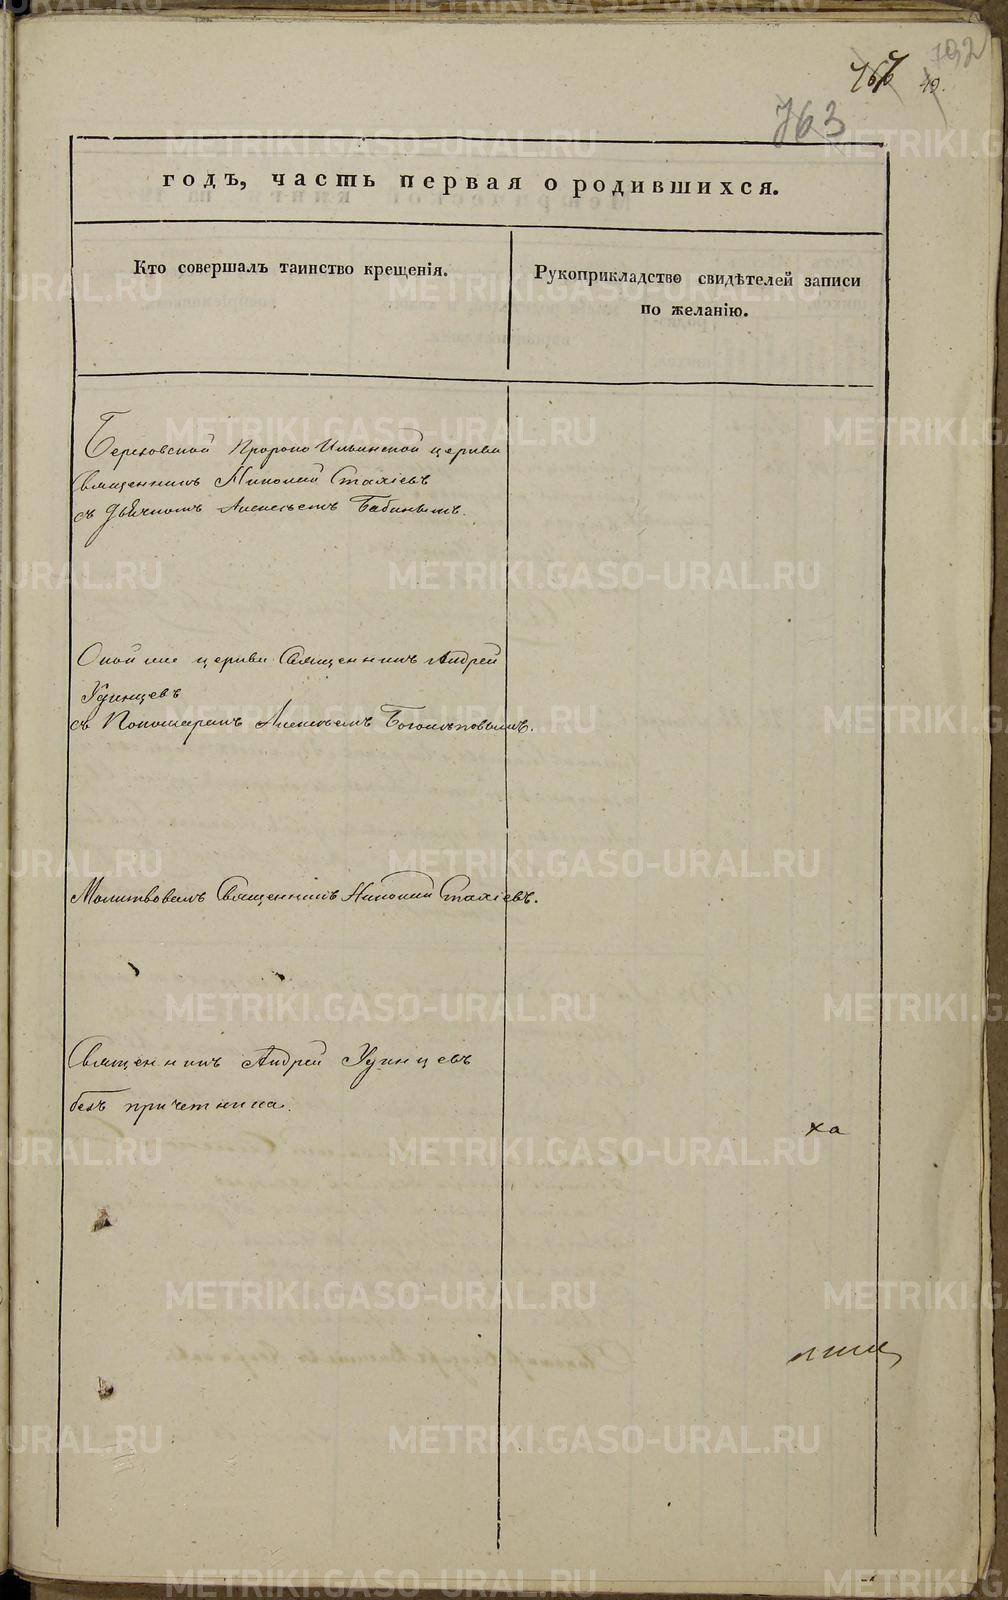 792
767 49.
763
годъ, часть первая о родившихся.
Кто совершалъ таинство крещенія.
Рукоприкладство свидѣтелей записи
по желанію.
Пророко Ильинской церкви
Священникъ Николай Стахіевъ
съ Дьячкомъ Алексѣемъ Бабинымъ.
Оной же церкви Священникъ Андрей
Удинцевъ
съ Пономаремъ Алексѣемъ Боголѣповымъ.
Молитвовалъ Священникъ Николай Стахіевъ.
Священникъ Андрей Удинцевъ
безъ причетника.
ха
METRIKI.GASO-URAL.RU